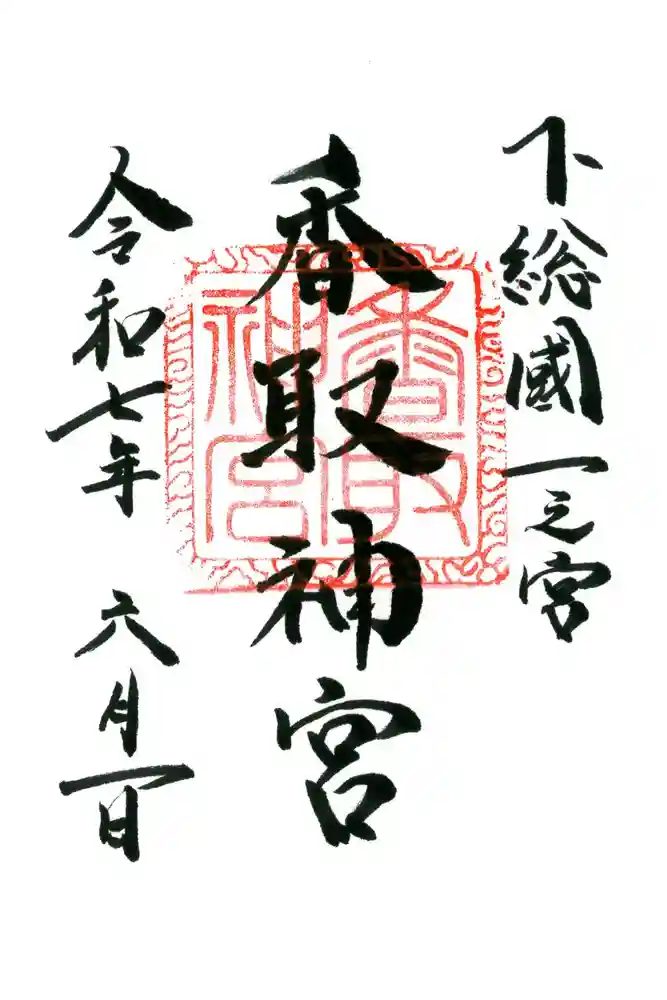 下総國一之宮
香取神宮
香取神宮
令和七年 六月一日